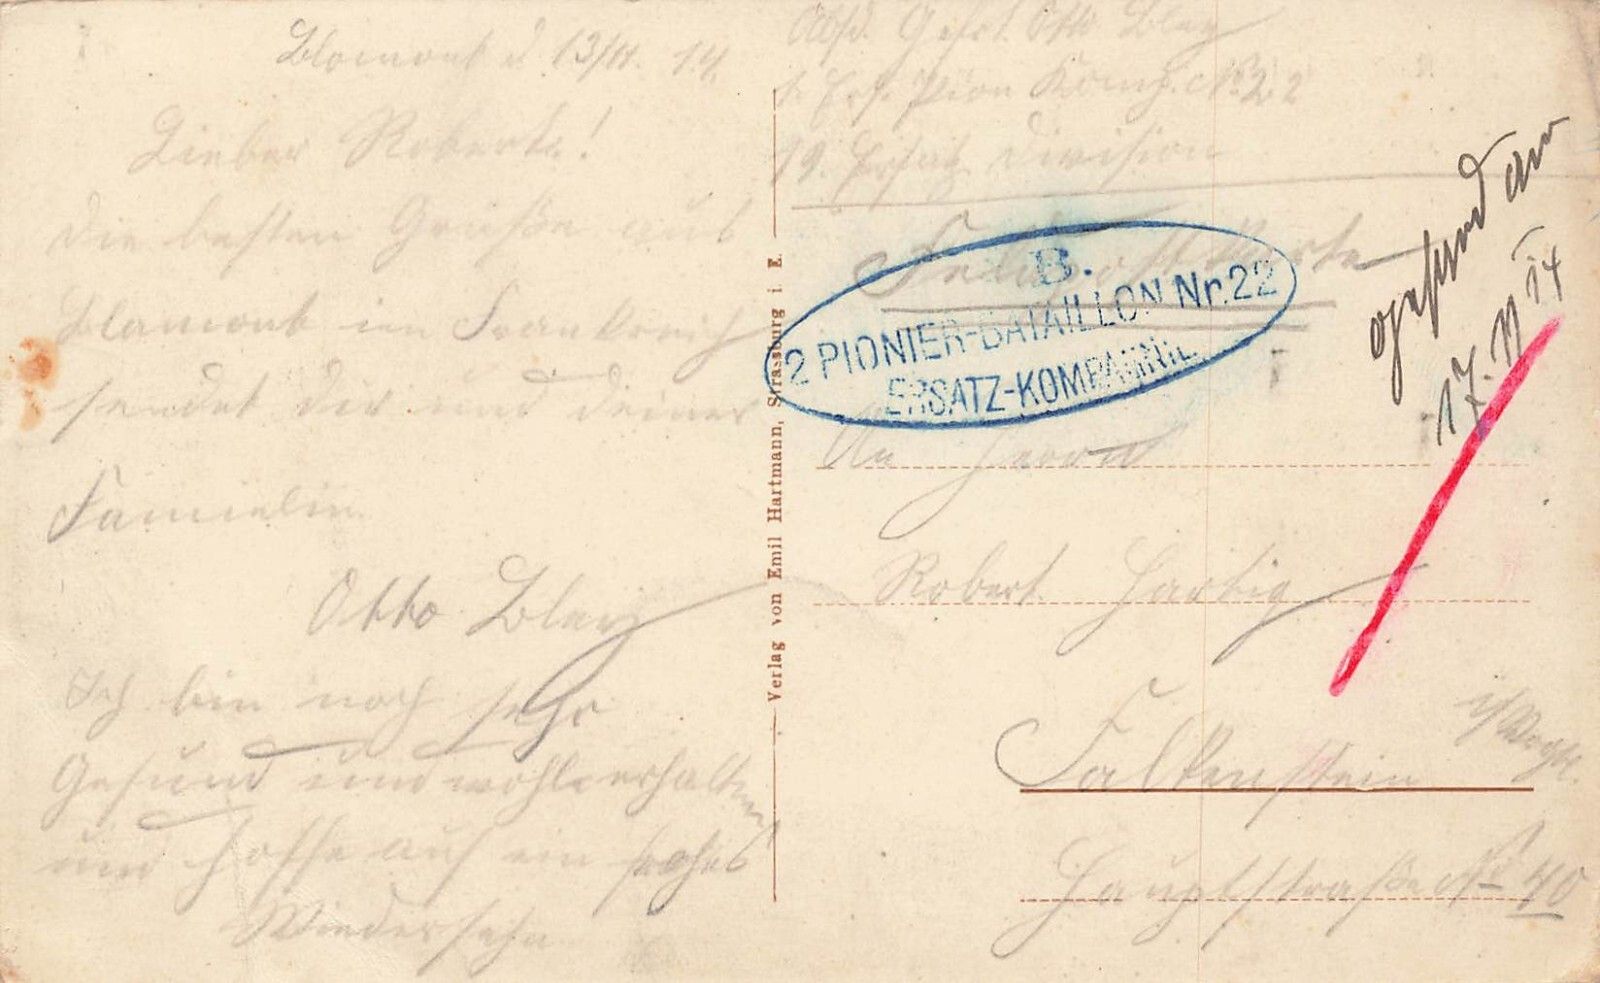 Blamont d. 13/11. 14.
Lieber Robert!
Die besten Grüße aus
Blamont in Frankreich
sendet dir und deiner
Familie
Otto
Ich bin noch sehr
Gesund und wohlerhalten
und hoffe auf ein frohes
Wiedersehn
Verlag von Emil Hartmann, Strassburg i. E.
Absd. Gefrt. Otto
Ers. Pion Komp. No. 22
19. Ersatz Division
Feldpostkarte
B.
2 PIONIER-BATAILLON Nr. 22
ERSATZ-KOMPAGNIE
An Herrn
Robert Hartig
Falkenstein
i/Vogtl.
Hauptstraße No 40
gesund an
17. 11 14